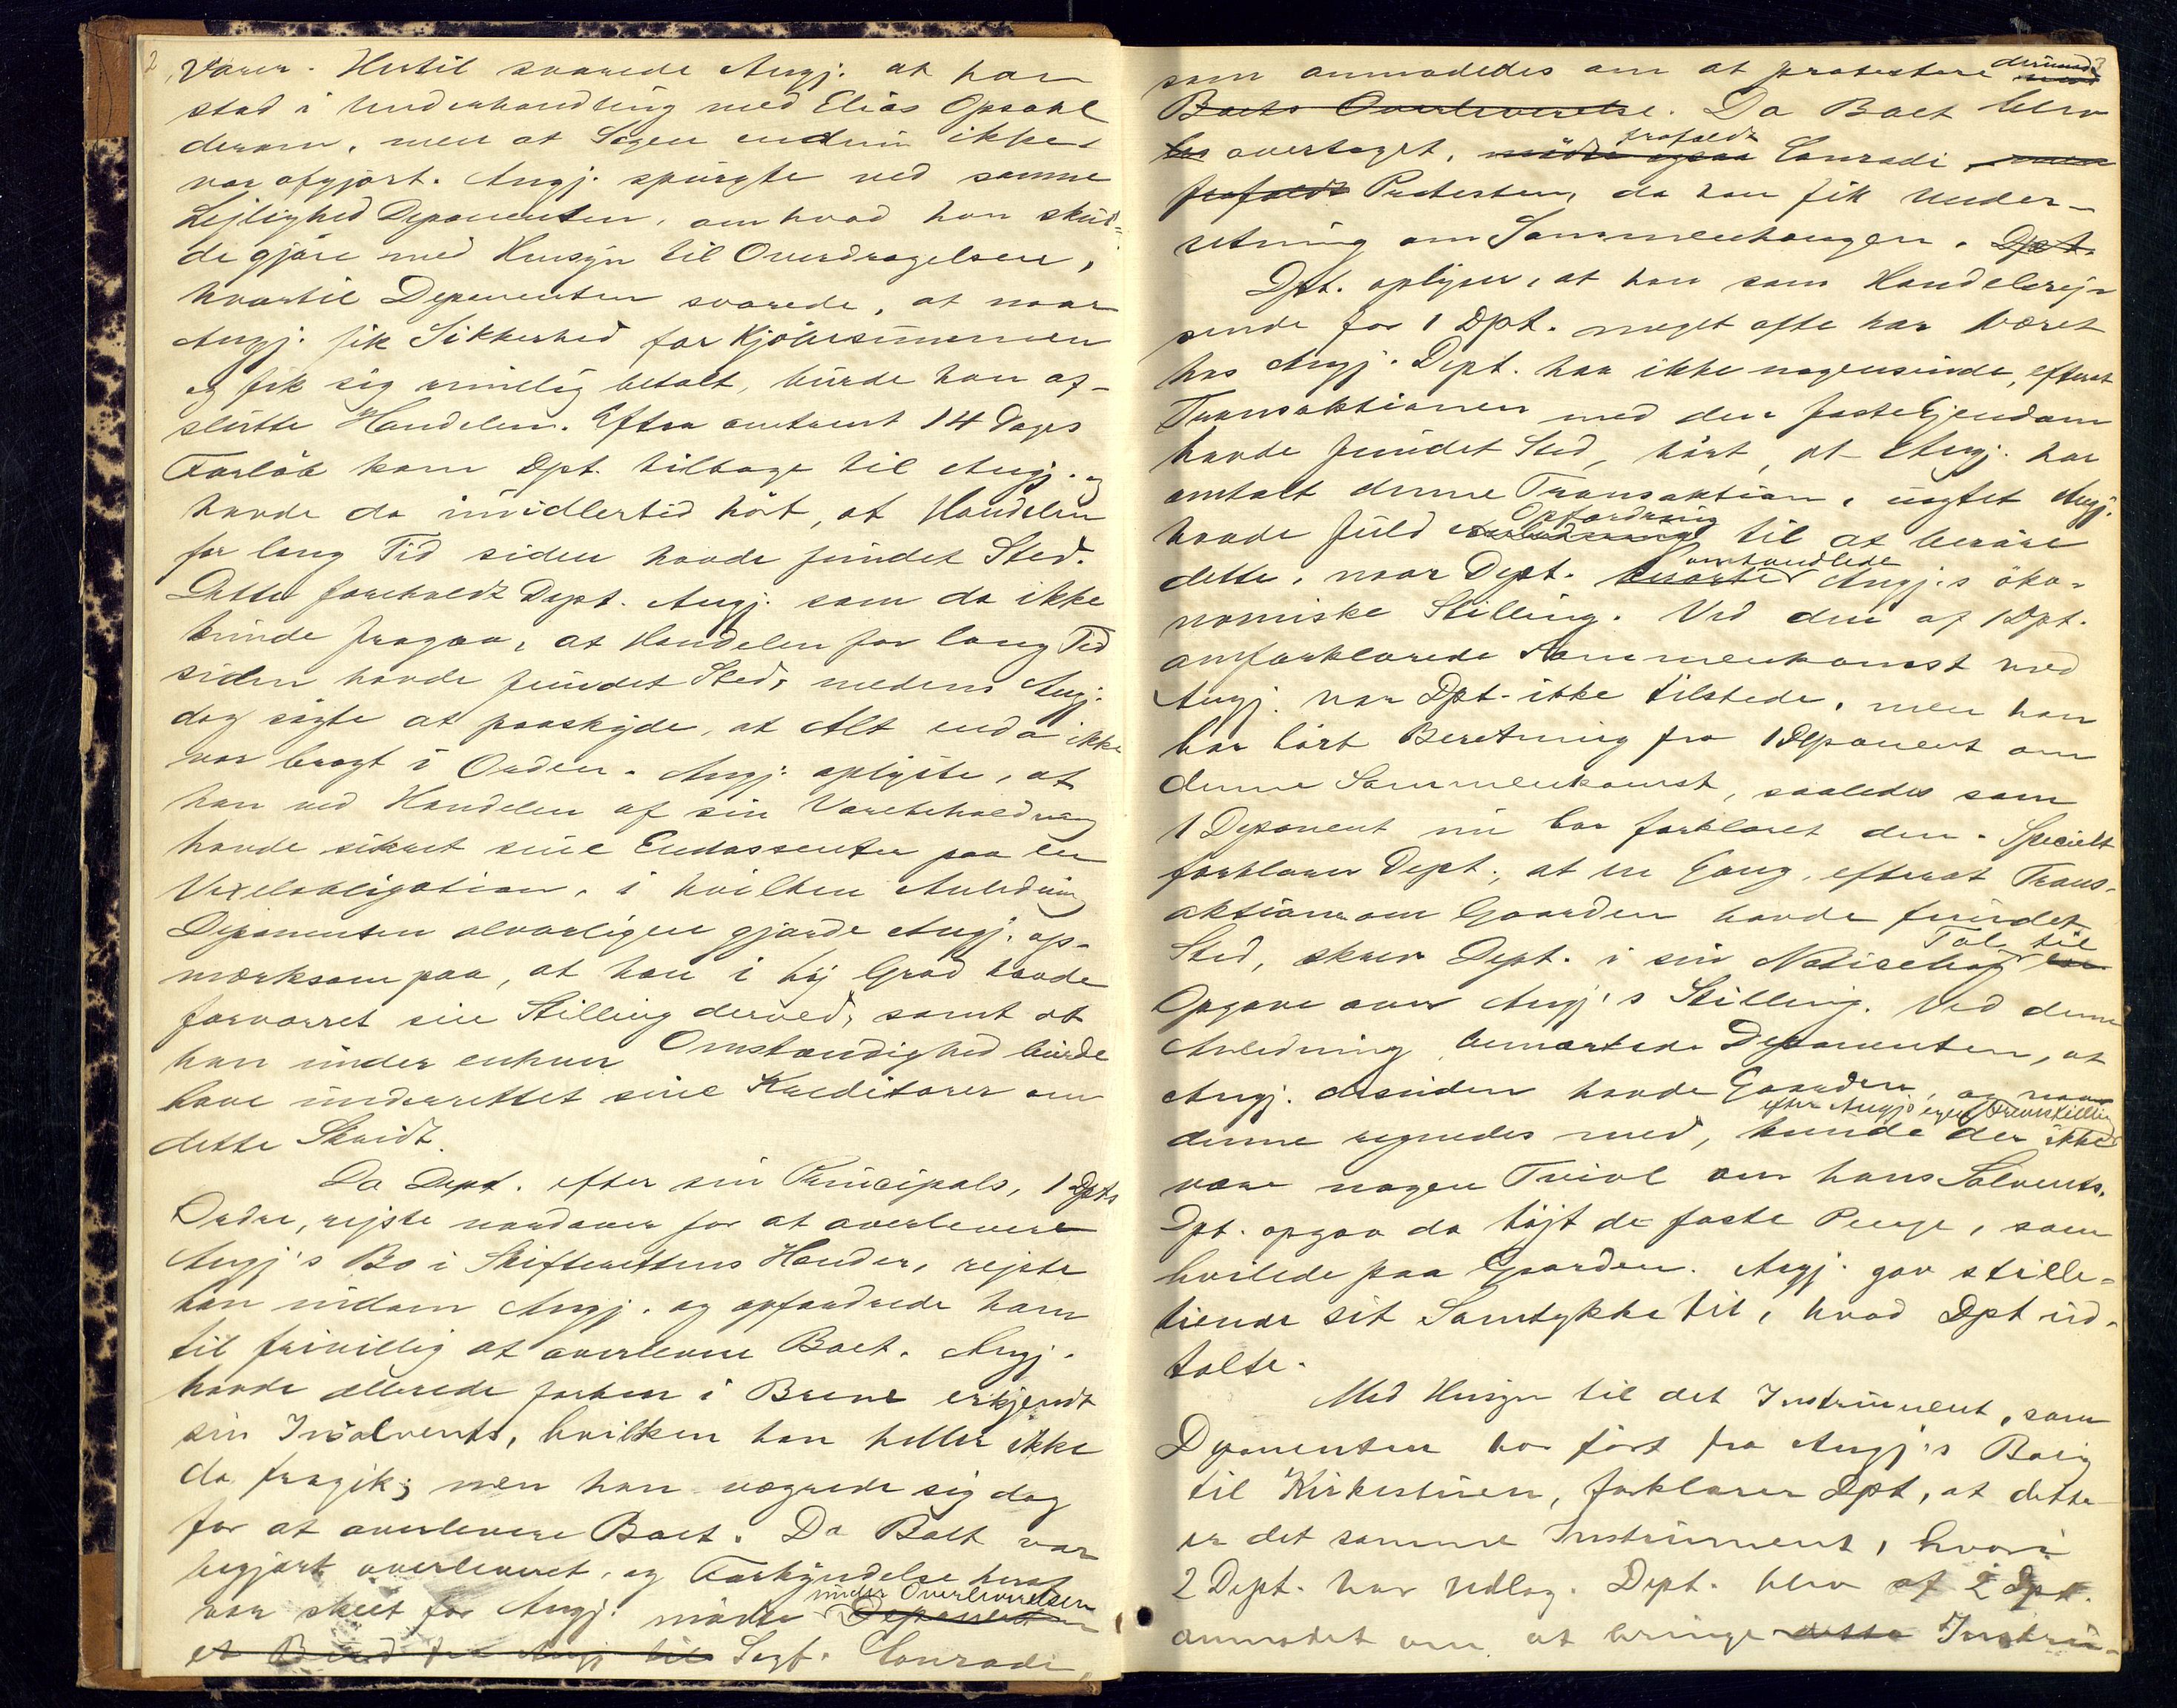 2
Varer. Hertil svarede Angj. at han
stod i Underhandling med Elias Opsahl
derom, men at Sagen endnu ikke
var afgjort. Angj. spurgte ved samme
Lejlighed Deponenten, om hvad han skul=
de gjøre med Hensyn til Overdragelsen,
hvortil Deponenten svarede, at naar
Angj. fik Sikkerhed for Kjöbesummen
og fik sig rimelig betalt, burde han af-
slutte Handelen. Efter omtrent 14 Dages
Forlöb kom Dpt. tilbage til Angj. og
havde da imidlertid hört, at Handelen
for lang Tid siden havde fundet Sted.
Dette foreholdt Dept. Angj. som da ikke
kunde fragaa, at Handelen for lang Tid
siden havde fundet Sted, medens Angj.
dog sögte at paaskyde, at Alt endda ikke
var bragt i Orden. Angj. oplyste, at
han ved Handelen af sin Varebeholdning
havde sikret sine Endossenter paa en
Vexelobligation, i hvilken Anledning
Deponenten alvorligen gjorde Angj. op-
mærksom paa, at han i höj Grad havde
forværret sin Stilling derved, samt at
han under enhver Omstændighed burde
have underrettet sine Kreditorer om
dette Skridt.
Da Dept. efter sin Principals, 1 Dpts
Ordre, rejste nordover for at overlevere
Angj's Bo i Skifterettens Hænder, rejste
han indom Angj. og opfordrede ham
til frivillig at overlevere Boet. Angj.
havde allerede forhen i Breve erkjendt
sin Insolvents, hvilken han heller ikke
da fragik; men han vægrede sig dog
for at overlevere Boet. Da Boet var
begjært overleveret, og Forkyndelse heraf
var skeet for Angj. mødte under Overleverelsen Deponenten
et Bud fra Angj til Sagf. Conradi,
som anmodedes om at protestere derimod
Boets Overleverelse. Da Boet blev
overtaget, mødte ogsaa frafaldt Conradi men
frafaldt Protesten, da han fik Under-
retning om Sammenhængen. Dpt.
Dpt. oplyser, at han som Handelsrej-
sende for 1 Dpt. meget ofte har været
hos Angj. Dept. har ikke nogensinde, efterat
Transaktionen med den faste Ejendom
havde fundet Sted, hört, at Angj. har
omtalt denne Transaktion, uagtet Angj.
havde fuld Opfordring til at beröre
dette, naar Dept. omhandlede Angj.s öko-
nomiske Stilling. Ved den af 1 Dpt.
omforklarede Sammenkomst med
Angj. var Dpt. ikke tilstede, men han
har hört Beretning fra 1 Deponent om
denne Sammenkomst, saaledes som
1 Deponent nu har forklaret den. Specielt
forklarer Dept., at en Gang, efterat Trans-
aktionen om Gaarden havde fundet
Sted, skrev Dept. i sin Notisebog Tal til
Opgave over Angj's Stilling. Ved denne
Anledning bemærkede Deponenten, at
Angj. desuden havde Gaarden, og naar
denne regnedes med, kunde der efter Angjs egen Fremstilling ikke
være nogen Tvivl om hans Solvents.
Dpt. opgav da höjt de faste Penge, som
hvilede paa Gaarden. Angj. gav stille-
tiende sit Samtykke til, hvad Dpt ud-
talte.
Med Hensyn til det Instrument, som
Deponenten har fört fra Angj's Bolig
til Kirkestuen, forklarer Dpt, at dette
er det samme Instrument, hvori
2 Dept. har Udlæg. Dept. blev af 2 Dpt.
anmodet om at bringe dette Instru-